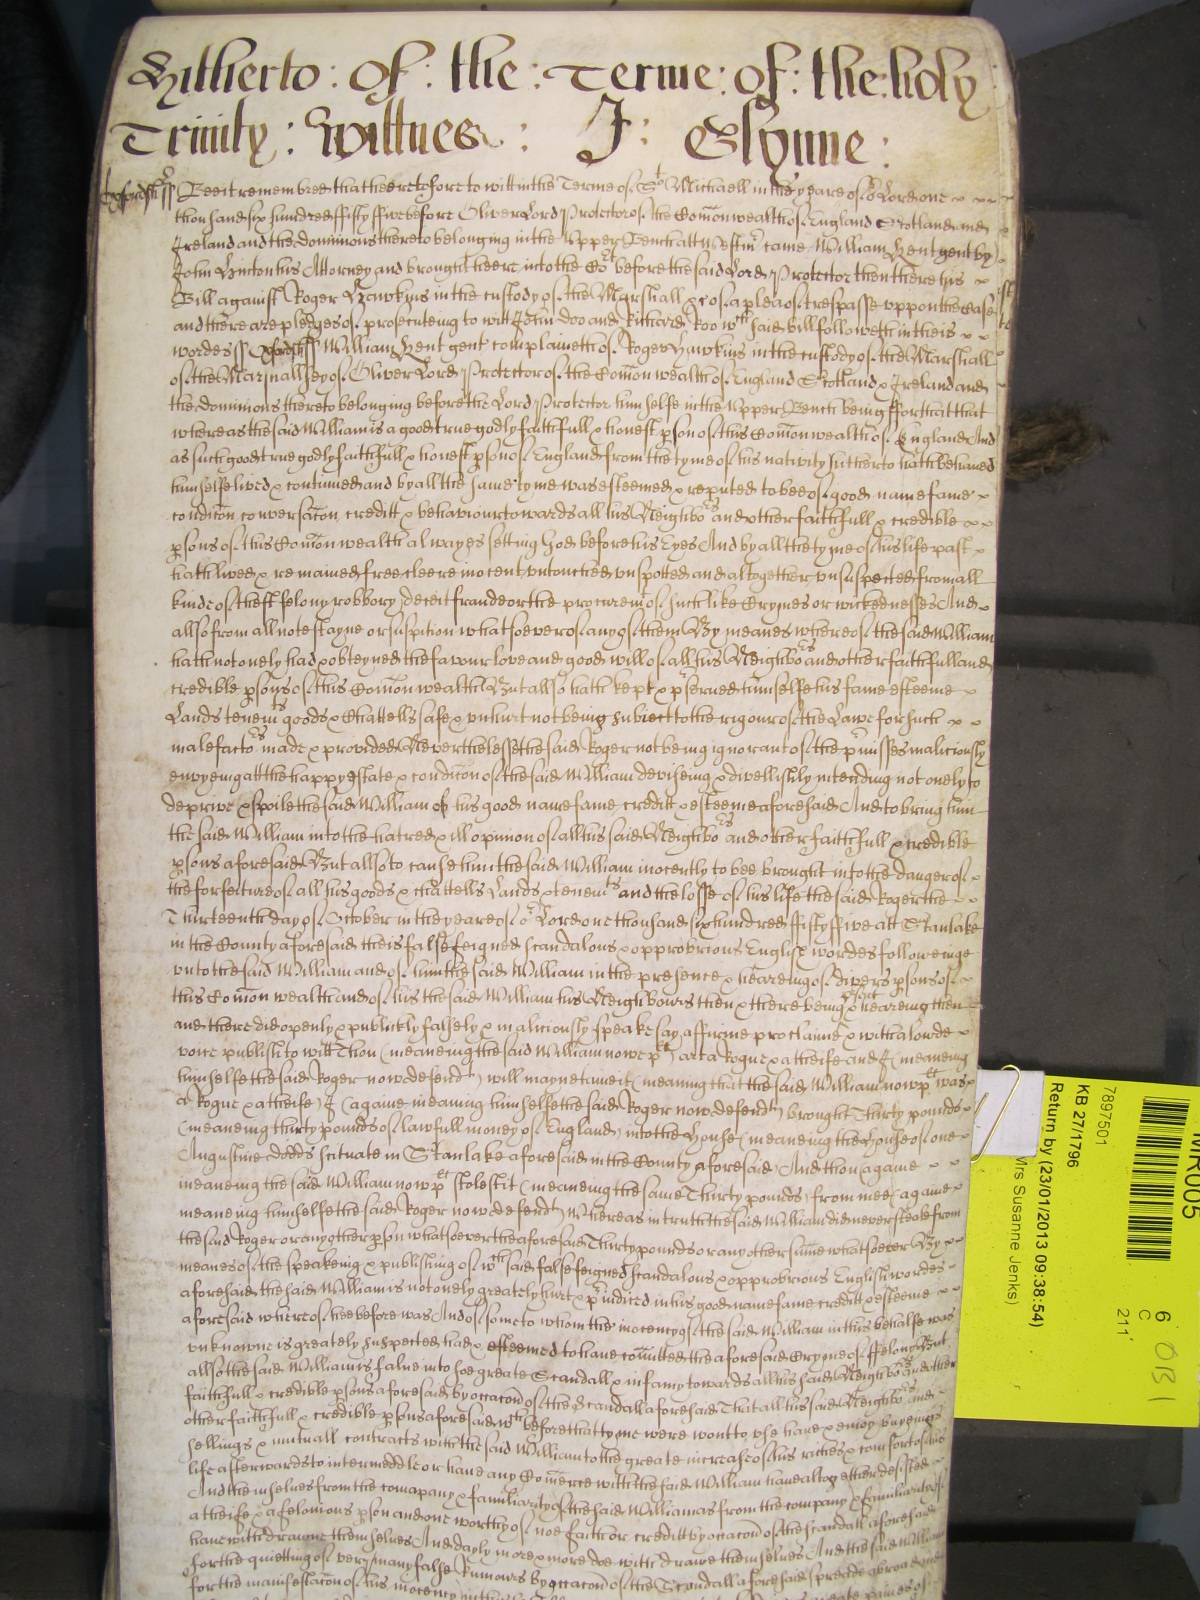 Hitherto : of : the : Terme : of : the : holy
Trinity : Wittnes : J : Glynne :
Oxfordsh ss Bee it remembred that heeretofore to witt in the Terme of St Michaell in the yeare of or Lord one
thousand six hundred fifty ffive before Oliver Lord Protector of the Comon wealth of England Scotland and
Ireland and the dominions thereto belonging in the Upper Bench att Westmr came William Hent gent by
John Hinton his Attorney and brought heere into the Cort before the said Lord Protector then there his
Bill against Roger Hawkins in the custody of the Marshall &c of a plea of trespasse uppon the Case
and there are pledges of prosecuteing to witt John Doo and Richard Roo wch said bill followeth in theis
wordes ss Oxfordsh ss William Hent gent complaineth of Roger Hawkins in the custody of the Marshall
of the Marshallsey of Oliver Lord Protector of the Comon wealth of England Scotland & Ireland and
the dominions thereto belonging before the Lord Protector himselfe in the Upper Bench being ffor that that
whereas the said William is a good true godly faithfull & honest pson of this Comon wealth of England And
as such good true godly faithfull & honest pson of England from the tyme of his nativity hitherto hath behaved
himselfe lived & continued and by all the same tyme was esteemed & reputed to bee of good name fame
condicon conversacon creditt & behaviour towards all his Neighbors and other faithfull & credible
psons of this Comon wealth alwayes setting God before his Eyes And by all the tyme of his life past
hath lived & remained free cleere inocent untouched unspotted and altogether unsuspected from all
kinde of theft felony robbory deceit fraude or the procuremt of such like Crymes or wickednesses And
allso from all note stayne or suspition whatsoever of any of them By meanes whereof the said William
hath not onely had & obteyned the favour love and good will of all his Neighbors and other faithfull and
credible psons of this Comon wealth But allso hath kept & pserved himselfe his fame esteeme
Lands tenemts goods & Chattells safe & unhurt not being subject to the rigour of the Lawe for such
malefactors made & provided Neverthelesse the said Roger not being ignorant of the pmisses maliciously
envyeing att the happy estate & condicon of the said William deviseing & divellishly intending not onely to
deprive & spoile the said William of his good name fame creditt & esteeme aforesaid And to bring him
the said William into the hatred & ill opinion of all his said Neighbors and other faithfull & credible
psons aforesaid But allso to cause him the said William inocently to bee brought into the danger of
the forfeiture of all his goods & chattells Lands & tenemts and the losse of his life the said Roger the
Thirteenth day of October in the yeare of or Lord one thousand six hundred ffifty ffive att Stanlake
in the County aforesaid theis false feigned scandalous & opprobrious English wordes followeinge
unto the said William and of him the said William in the presence & heareing of divers psons of
this Comon wealth and of his the said William his Neighbours then & there being psent & heareing then
and there did openly & publickly falsely & maliciously speake say affirme proclaime & with a lowde
voice publish to witt Thou (meaneing the said William nowe plt) art a Rogue & a theife and I (meaneing
himselfe the said Roger now defendt) will mayneteine it (meaning that the said William now plt was
a Rogue & a theife) I (againe meaning himselfe the said Roger now defendt) brought Thirty pounds
(meaneing thirty pounds of lawfull money of England) into the House (meaneing the House of one
Augustine Dodds scituate in Stanlake aforesaid in the County aforesaid And thou againe
meaneing the said William now plt stolest it (meaneing the same Thirty pounds) from mee (againe
meaneing himselfe the said Roger now defendt) Whereas in truth the said William did never steale from
the said Roger or any other pson whatsoever the aforesaid Thirty pounds or any other sume whatsoever By
meanes of the speakeing & publishing of wch said false feigned scandalous & opprobrious English wordes
aforesaid the said William is not onely greately hurt & pjudiced in his good name fame creditt & esteeme
aforesaid whereof hee before was And of some to whom the inocency of the said William in this behalfe was
unknowne is greately suspected had & esteemed to have comitted the aforesaid Cryme of ffelony But
allso the said William is falne into soe greate Scandall & infamy towards all his said Neighbors and other
faithfull & credible psons aforesaid by occacon of the Scandall aforesaid That all his said Neighbors and
other faithfull & credible psons aforesaid wch before that tyme were wont to use have & enioy buyeings
sellings & mutuall contracts with the said William to the great increase of his riches & comfort of his
life afterwards to intermeddle or have any Comerce with the said William have altogether desisted
And themselves from the company & familiarity of the said William as from the company & familiarity of
a theife & a felonious pson and one worthy of noe faith or creditt by occacon of the scandall aforesaid
have withdrawne themselves And dayly more & more doe withdrawe themselves And the said William
for the quietting of very many false Rumours by occacon of the Scandall aforesaid spread abroad and
for the manifestacon of his inocency in this
7897501
KB 27/1796
Return by (23/01/2013 09:38:54)
Mrs Susanne Jenks)
MR005
6
C
211'